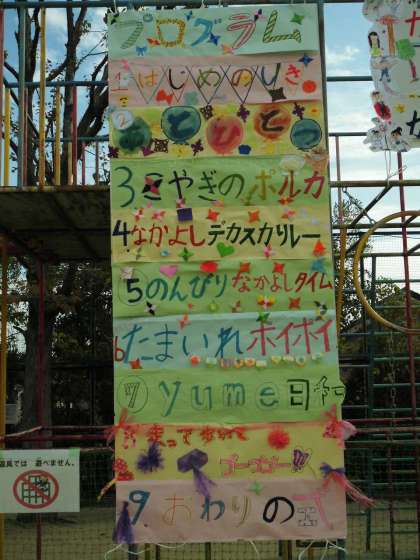 プログラム
1 はじめのしき
2
3 こやぎのポルカ
4 なかよしデカスカリレー
⑤ のんびりなかよしタイム
6 たまいれホイホイ
⑦ yume日和
まって
ゴーゴゴー
9. おわりの
具では 遊べません。